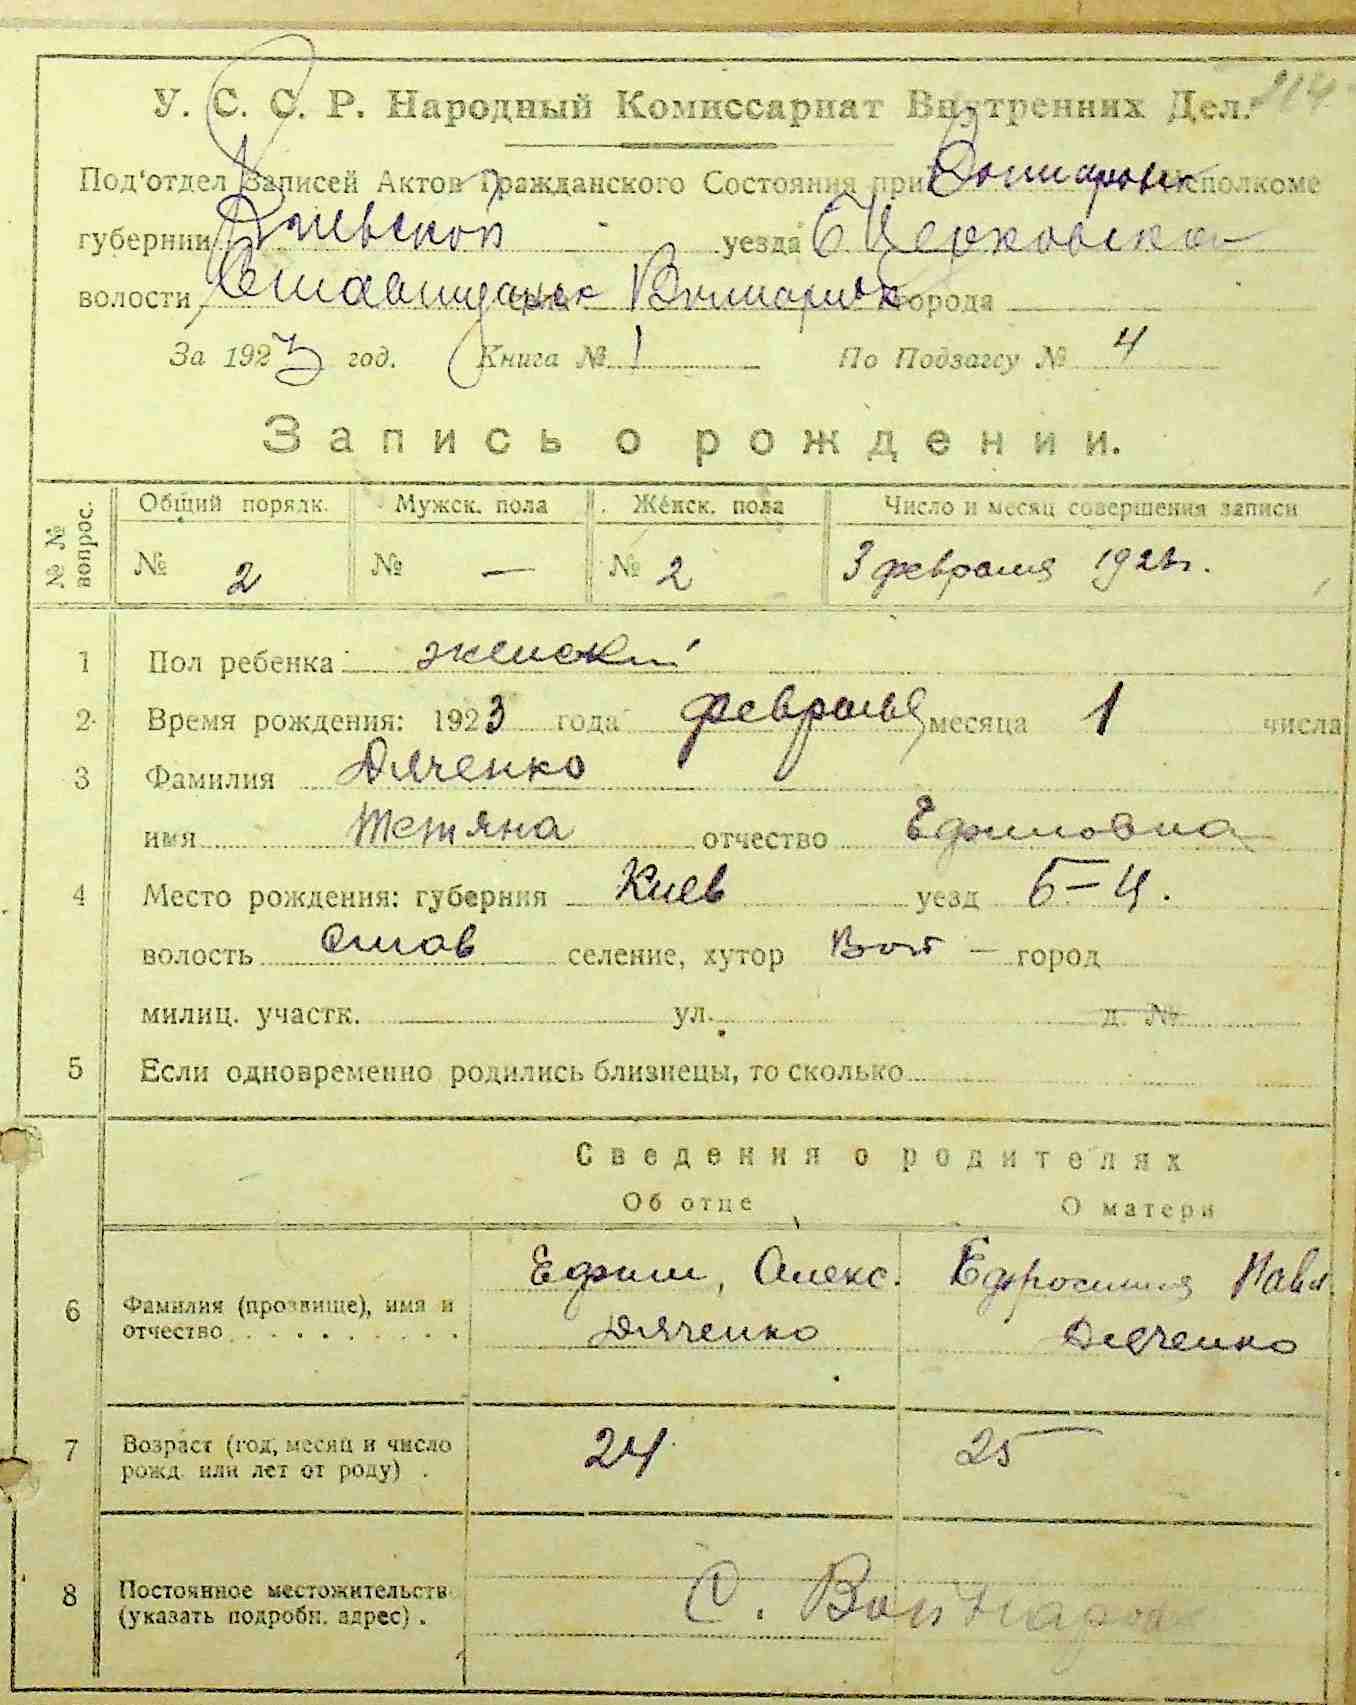 214
У. С. С. Р. Народный Комиссариат Внутренних Дел.
Под'отдел Записей Актов Гражданского Состояния при исполкоме
губернии Киевской уезда Б Церковско
волости села города
За 1923 год. Книга № 1 По Подзагсу № 4
Запись о рождении.
№ № вопрос. Общий порядк. Мужск. пола Женск. пола Число и месяц совершения записи
№ 2 № — № 2 3 февраля 1923г.
1 Пол ребенка женский
2 Время рождения: 1923 года февраля месяца 1 числа
3 Фамилия Дяченко
имя Тетяна отчество Ефимовна
4 Место рождения: губерния Киев уезд Б-Ц.
волость Став селение, хутор Вой — город
милиц. участк. ул. д. №
5 Если одновременно родились близнецы, то сколько
Сведения о родителях
Об отце О матери
6 Фамилия (прозвище), имя и отчество Ефим, Алекс. Дяченко Ефросиния Павл Дяченко
7 Возраст (год, месяц и число рожд. или лет от роду) . 24 25
8 Постоянное местожительств (указать подробн. адрес) . С.